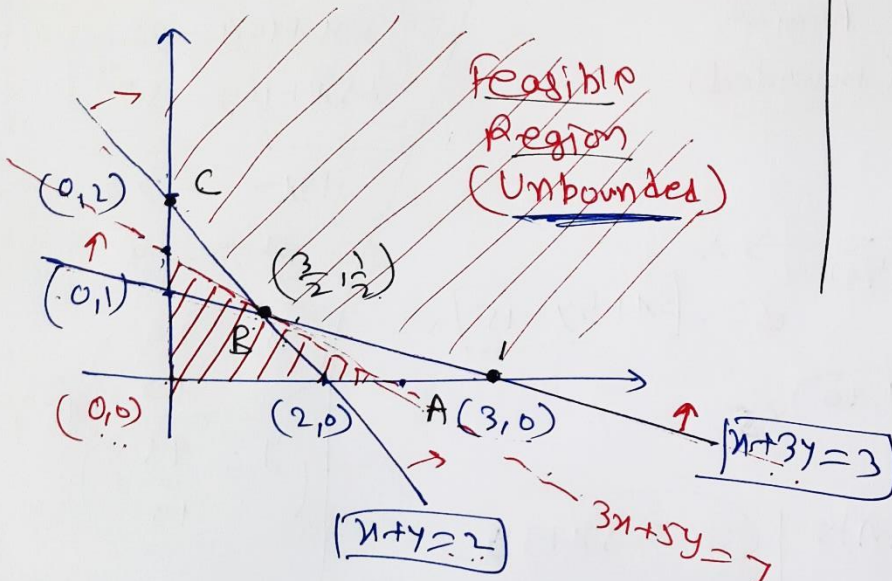 Feasible
Region
(Unbounded)
(0,2)
C
(3/2, 1/2)
(0,1)
B
(0,0)
(2,0)
A (3,0)
x+3y=3
x+y=2
3x+5y=7